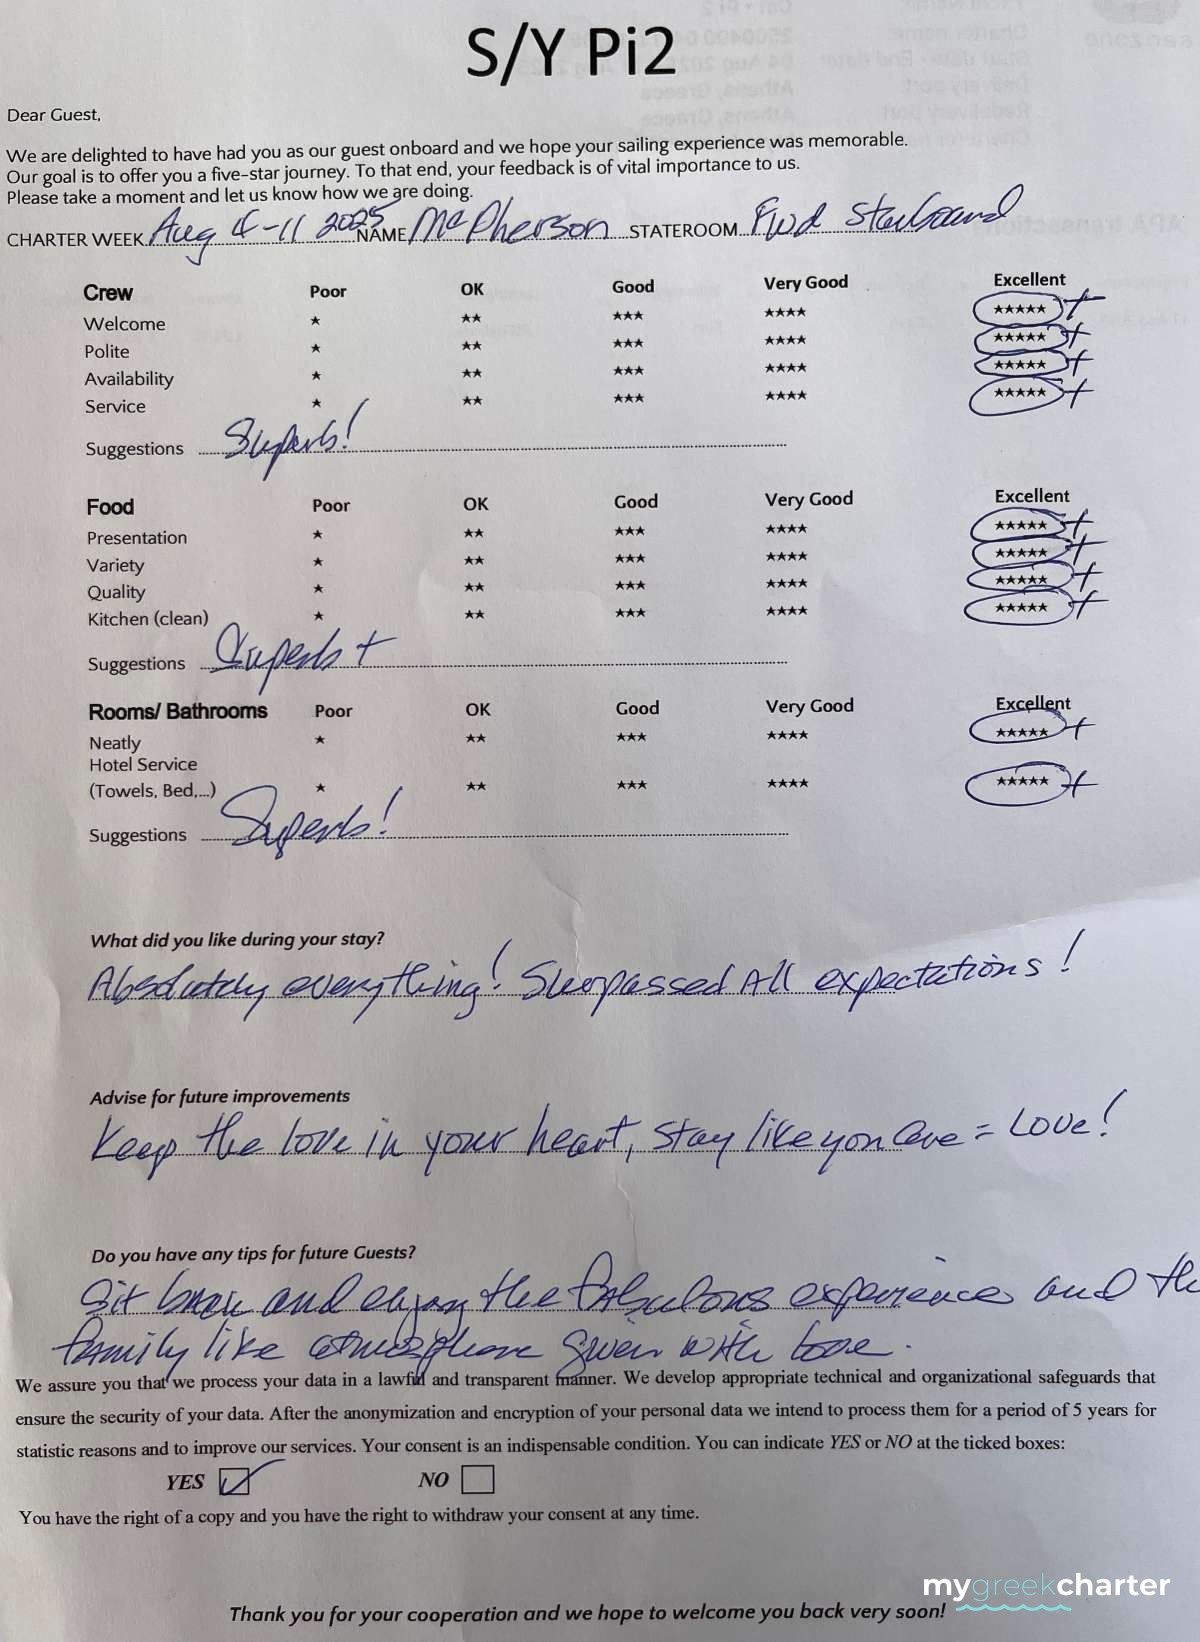 S/Y Pi2
Dear Guest,
We are delighted to have had you as our guest onboard and we hope your sailing experience was memorable.
Our goal is to offer you a five-star journey. To that end, your feedback is of vital importance to us.
Please take a moment and let us know how we are doing.
CHARTER WEEK Aug 4-11 2025 NAME McPherson STATEROOM Fwd Starboard
Crew Poor OK Good Very Good Excellent
Welcome ★ ★★ ★★★ ★★★★ ★★★★★ +
Polite ★ ★★ ★★★ ★★★★ ★★★★★ +
Availability ★ ★★ ★★★ ★★★★ ★★★★★ +
Service ★ ★★ ★★★ ★★★★ ★★★★★ +
Suggestions Superb!
Food Poor OK Good Very Good Excellent
Presentation ★ ★★ ★★★ ★★★★ ★★★★★ +
Variety ★ ★★ ★★★ ★★★★ ★★★★★ +
Quality ★ ★★ ★★★ ★★★★ ★★★★★ +
Kitchen (clean) ★ ★★ ★★★ ★★★★ ★★★★★ +
Suggestions Superb +
Rooms/ Bathrooms Poor OK Good Very Good Excellent
Neatly ★ ★★ ★★★ ★★★★ ★★★★★ +
Hotel Service
(Towels, Bed,...) ★ ★★ ★★★ ★★★★ ★★★★★ +
Suggestions Superb!
What did you like during your stay?
Absolutely everything! Surpassed All expectations!
Advise for future improvements
Keep the love in your heart, stay like you are = Love!
Do you have any tips for future Guests?
Sit back and enjoy the fabulous experience and th
family like atmosphere given with love.
We assure you that we process your data in a lawful and transparent manner. We develop appropriate technical and organizational safeguards that
ensure the security of your data. After the anonymization and encryption of your personal data we intend to process them for a period of 5 years for
statistic reasons and to improve our services. Your consent is an indispensable condition. You can indicate YES or NO at the ticked boxes:
YES ☑ NO ☐
You have the right of a copy and you have the right to withdraw your consent at any time.
mygreekcharter
Thank you for your cooperation and we hope to welcome you back very soon!